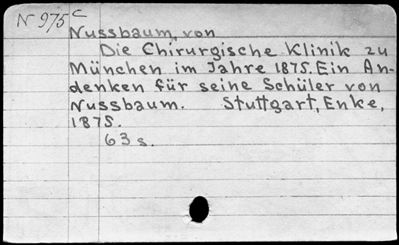 N 975 c
Nussbaum, von
Die Chirurgische Klinik zu
München im Jahre 1875. Ein An-
denken für seine Schüler von
Nussbaum. Stuttgart, Enke,
1875.
63 s.